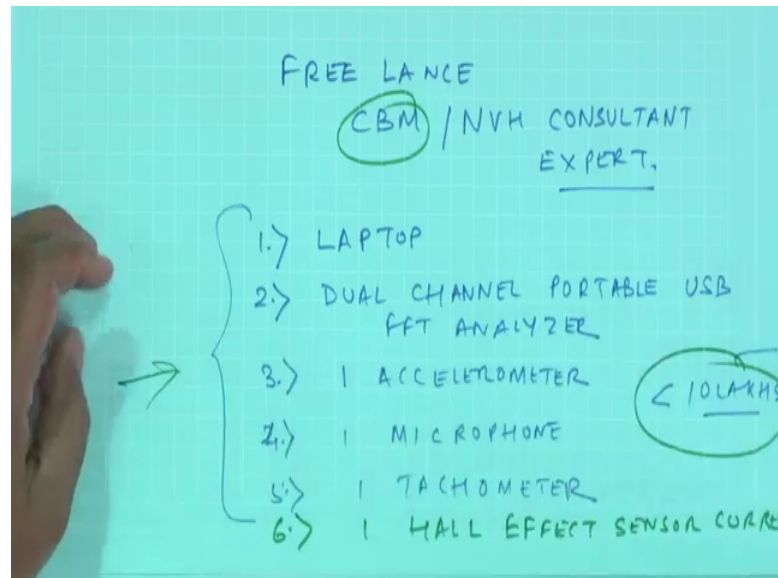 FREE LANCE
CBM / NVH CONSULTANT
EXPERT.
1.> LAPTOP
2.> DUAL CHANNEL PORTABLE USB
FFT ANALYZER
3.> 1 ACCELEROMETER
< 10 LAKHS
4.> 1 MICROPHONE
5.> 1 TACHOMETER
6.> 1 HALL EFFECT SENSOR CURRE